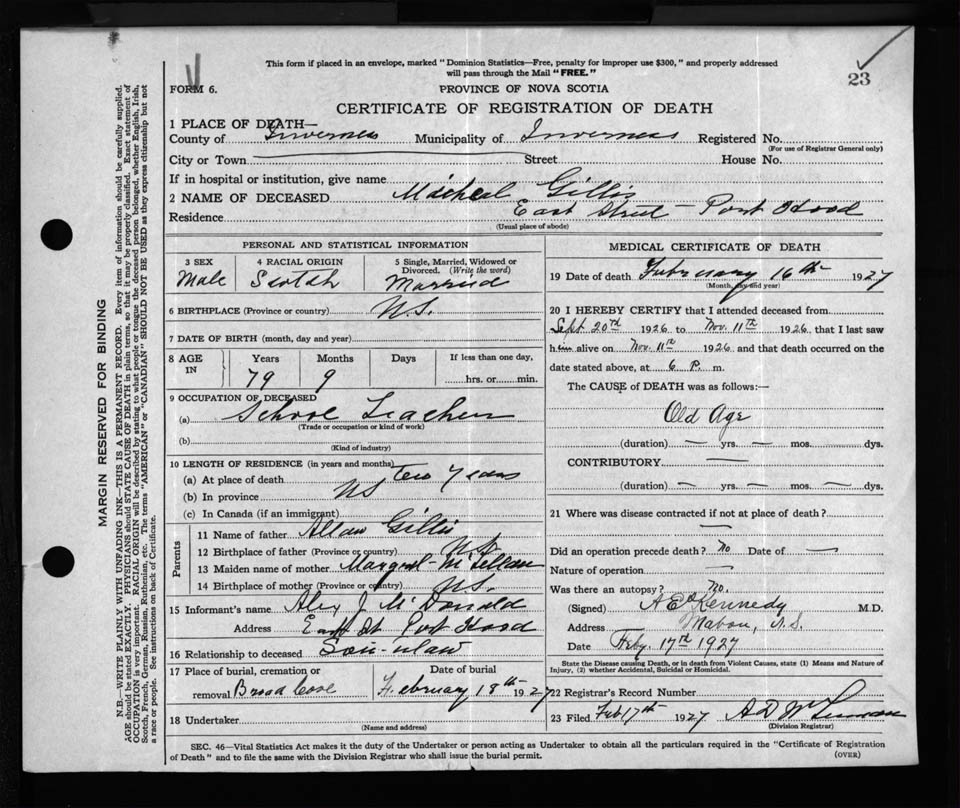 This form if placed in an envelope, marked "Dominion Statistics—Free, penalty for improper use $300," and properly addressed
will pass through the Mail "FREE."
23
FORM 6.
PROVINCE OF NOVA SCOTIA
CERTIFICATE OF REGISTRATION OF DEATH
1 PLACE OF DEATH—
County of Inverness Municipality of Inverness Registered No.
(For use of Registrar General only)
City or Town Street House No.
If in hospital or institution, give name
2 NAME OF DECEASED Micheal Gillis
Residence East Street - Port Hood
(Usual place of abode)
PERSONAL AND STATISTICAL INFORMATION
3 SEX 4 RACIAL ORIGIN 5 Single, Married, Widowed or
Divorced. (Write the word)
Male Scotch Married
6 BIRTHPLACE (Province or country) N.S.
7 DATE OF BIRTH (month, day and year)
8 AGE IN Years Months Days If less than one day,
79 9 hrs. or min.
9 OCCUPATION OF DECEASED
(a) School Teacher
(Trade or occupation or kind of work)
(b)
(Kind of industry)
10 LENGTH OF RESIDENCE (in years and months)
(a) At place of death Years
(b) In province NS
(c) In Canada (if an immigrant)
Parents
11 Name of father Allan Gillis
12 Birthplace of father (Province or country) N.S.
13 Maiden name of mother McLellan
14 Birthplace of mother (Province or country) N.S.
15 Informant's name Alex J. McDonald
Address East St Port Hood
16 Relationship to deceased Son-nlaw
17 Place of burial, cremation or Date of burial
removal Broad Cove February 18th 1927
18 Undertaker
(Name and address)
MEDICAL CERTIFICATE OF DEATH
19 Date of death February 16th 1927
(Month, day and year)
20 I HEREBY CERTIFY that I attended deceased from
Sept 20th 1926 to Nov. 11th 1926 that I last saw
him alive on Nov. 11th 1926 and that death occurred on the
date stated above, at 6 P. m.
The CAUSE of DEATH was as follows:—
Old Age
(duration) — yrs. — mos. dys.
CONTRIBUTORY —
(duration) — yrs. — mos. dys.
21 Where was disease contracted if not at place of death?
—
Did an operation precede death? No Date of —
Nature of operation —
Was there an autopsy? No.
(Signed) A E Kennedy M.D.
Address Mabou, N.S.
Date Feby. 17th 1927
State the Disease causing Death, or in death from Violent Causes, state (1) Means and Nature of
Injury, (2) whether Accidental, Suicidal or Homicidal.
22 Registrar's Record Number
23 Filed Feb 17th 1927
(Division Registrar)
SEC. 46—Vital Statistics Act makes it the duty of the Undertaker or person acting as Undertaker to obtain all the particulars required in the "Certificate of Registration
of Death" and to file the same with the Division Registrar who shall issue the burial permit.
(OVER)
MARGIN RESERVED FOR BINDING
N.B.—WRITE PLAINLY WITH UNFADING INK—THIS IS A PERMANENT RECORD. Every item of information should be carefully supplied.
AGE should be stated EXACTLY. PHYSICIANS should STATE CAUSE OF DEATH in plain terms, so that it may be properly classified. Exact statement of
OCCUPATION is very important. RACIAL ORIGIN will be described by stating to what people or tongue the deceased person belonged, whether English, Irish,
Scotch, French, German, Russian, Ruthenian, etc. The terms "AMERICAN" or "CANADIAN" SHOULD NOT BE USED as they express citizenship but not
a race or people. See instructions on back of Certificate.